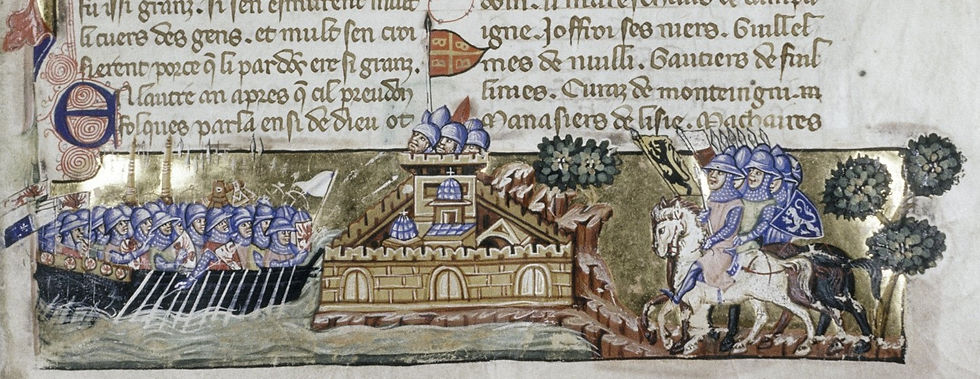 fu issi granz. si sen esmurent mult
li cuers des gens. et mult sen croi
sierent porce q̃ li pardõs ere si granz.
En lautre an apres q̃ cil preudõ
folques parla ensi de dieu ot
doin. li mareschaus de campai
igne. Joffroi ses niers. Guillel
mes de nuilli. Gautiers de fuil
limes. Euraz de monteingni. m
Manasiers de lisle. Machaires